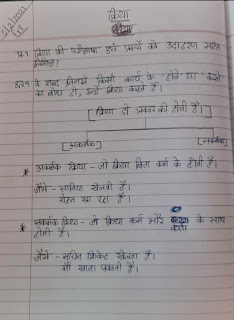 क्रिया
प्र.1 क्रिया की परिभाषा एवं प्रकारों को उदाहरण सहित
लिखिए?
उत्तर वे शब्द जिनसे किसी कार्य के होने या करने
का बोध हो, उन्हें क्रिया कहते हैं।
[क्रिया दो प्रकार की होती है।]
[अकर्मक] [सकर्मक]
* अकर्मक क्रिया - जो क्रिया बिना कर्म के होती है।
जैसे - सानिया खेलती है।
रोहन खा रहा है।
* सकर्मक क्रिया - जो क्रिया कर्म और कर्ता के साथ
होती है।
जैसे - सचिन क्रिकेट खेलता है।
माँ खाना पकाती है।